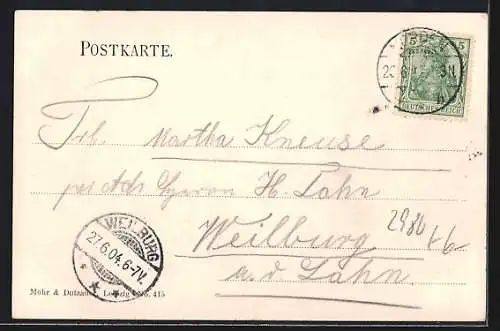 POSTKARTE.
5 5
DEUTSCHES REICH
Frl. Martha Kneuse
per Adr. Herrn H. Jahn
Weilburg
a. d. Lahn.
WEILBURG
27.6.04.6-7V.
Mohr & Dutzauer, Leipzig No. 415